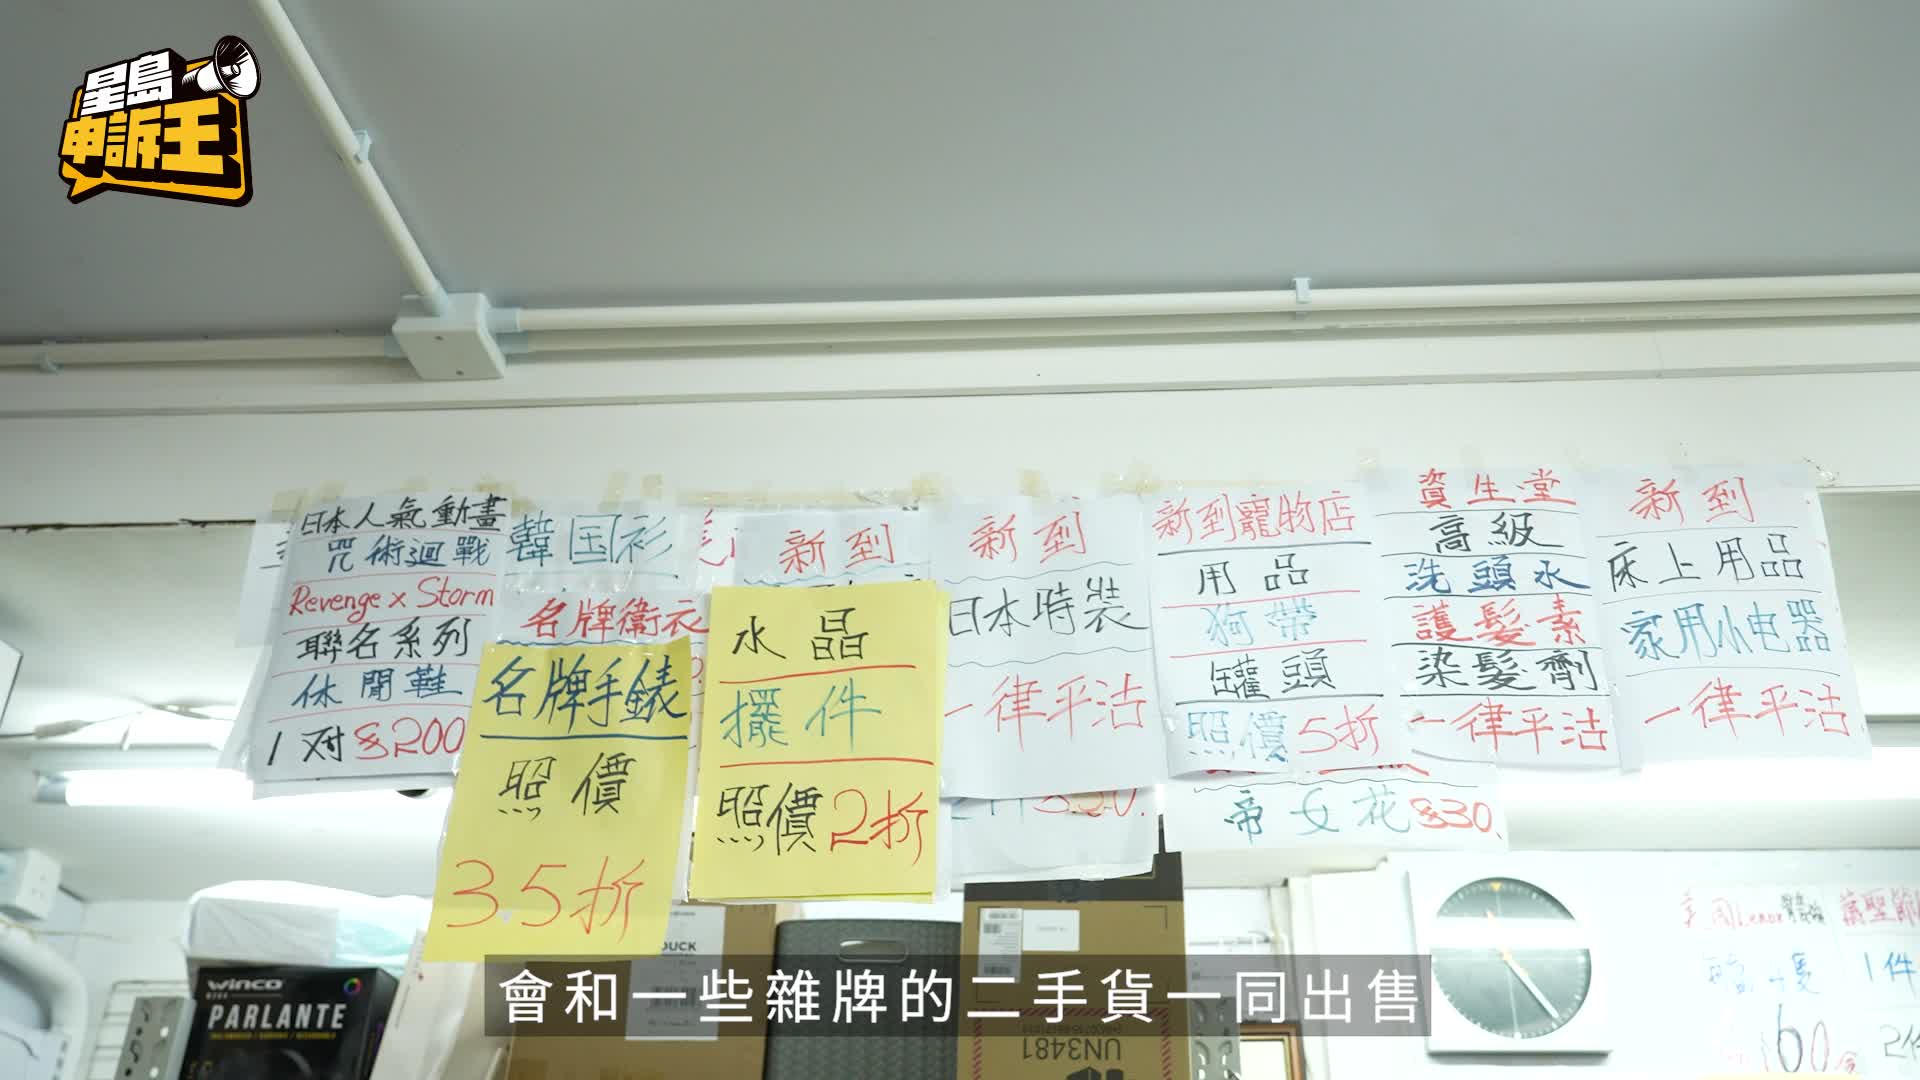 星島
申訴王
日本人氣動畫
咒術迴戰
Revenge x Storm
聯名系列
休閒鞋
1对$200
韓国衫
名牌衛衣
名牌手錶
照價
3.5折
新到
水晶
擺件
照價2折
新到
日本時裝
一律平沽
新到寵物店
用品
狗帶
罐頭
照價5折
帝女花$30.
資生堂
高級
洗頭水
護髮素
染髮劑
一律平沽
新到
床上用品
家用小电器
一律平沽
1件
WINCO
PARLANTE
DUCK
UN3481
會和一些雜牌的二手貨一同出售